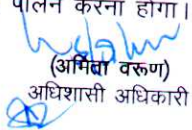 पालन करना होगा।
(अमिता वरूण)
अधिशासी अधिकारी